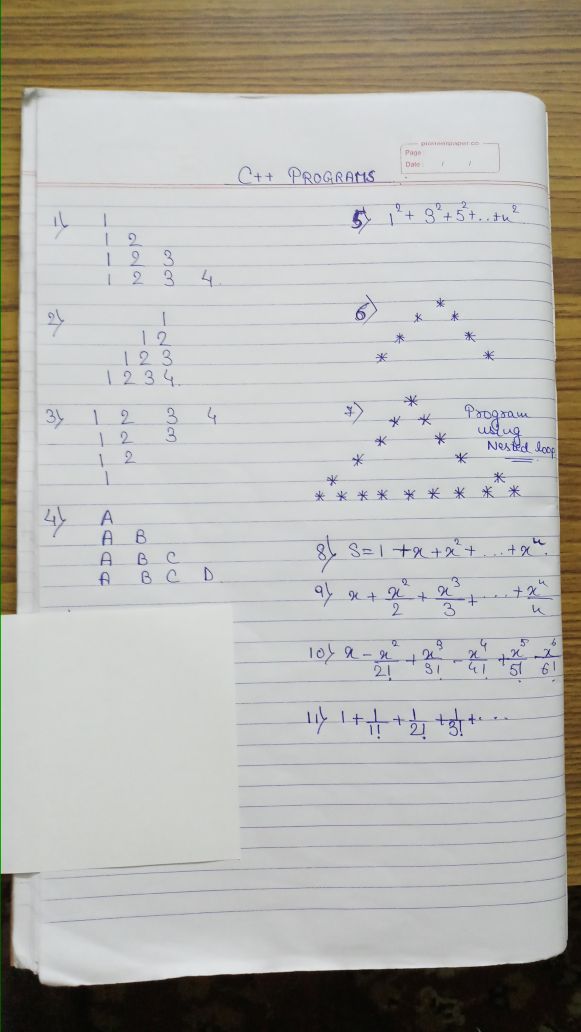 Page :
Date : / /
C++ PROGRAMS
1) 1
1 2
1 2 3
1 2 3 4.
2) 1
1 2
1 2 3
1 2 3 4.
3) 1 2 3 4
1 2 3
1 2
1
4) A
A B
A B C
A B C D
5) 1² + 3² + 5² + ... + n²
6) *
* *
* *
* *
7) *
* *
* *
* *
* *
* * * * * * * * *
Program
using
Nested loop
8) S = 1 + x + x² + .... + xⁿ.
9) x + x²/2 + x³/3 + .... + xⁿ/n
10) x - x²/2! + x³/3! - x⁴/4! + x⁵/5! - x⁶/6!
11) 1 + 1/1! + 1/2! + 1/3! + ...